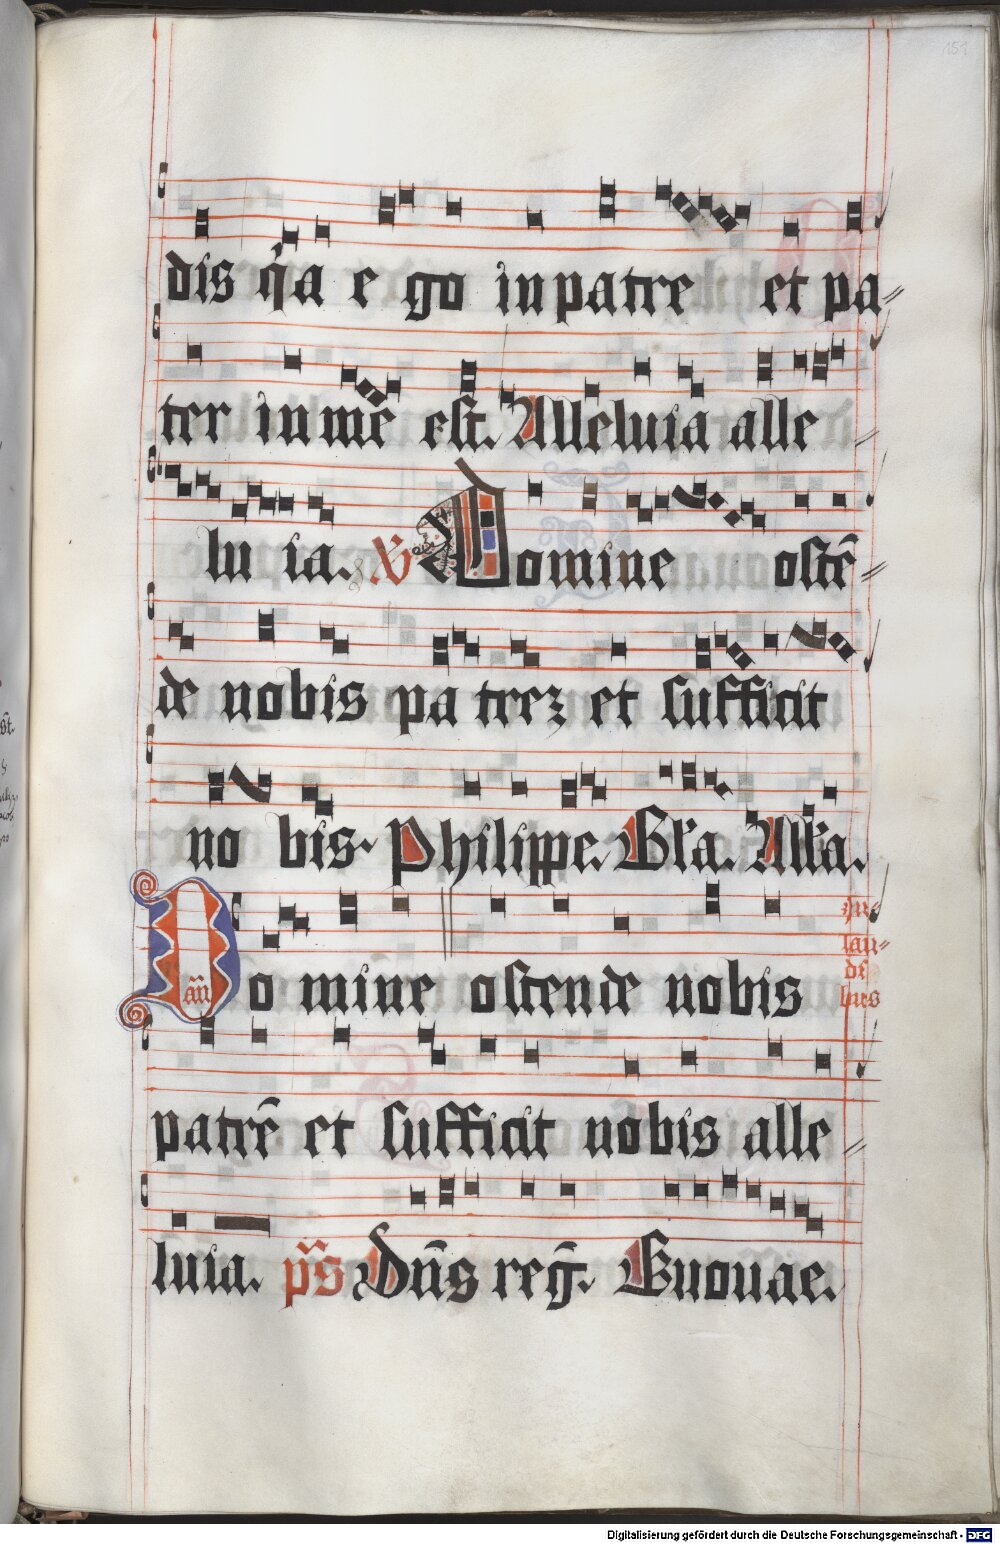 151
dis q̃a e go in patre et pa⸗
ter in mē est. Alleluia alle
lu ia. ℣ Domine ostē⸗
de nobis pa trez et sufficit
no bis. Philippe. Gl̃a. All̃a.
Do mine ostende nobis
añ
In lau⸗ dibus
patrē et sufficit nobis alle
luia. p̃s Dñs reg̃. Euouae.
Digitalisierung gefördert durch die Deutsche Forschungsgemeinschaft - DFG